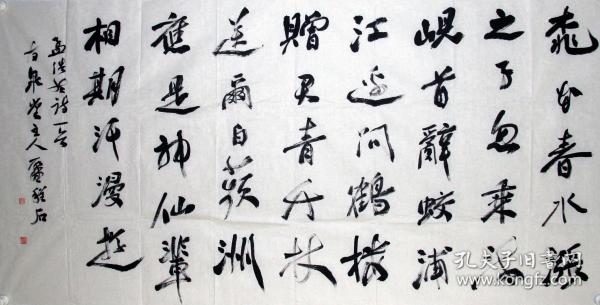 桃花春水漲
之子忽乘流
峴首辭蛟浦
江邊問鶴樓
贈君青竹杖
送爾白蘋洲
應是神仙輩
相期汗漫遊
孟浩然詩一首
古泉堂主人
孔夫子旧书网
www.kongfz.com